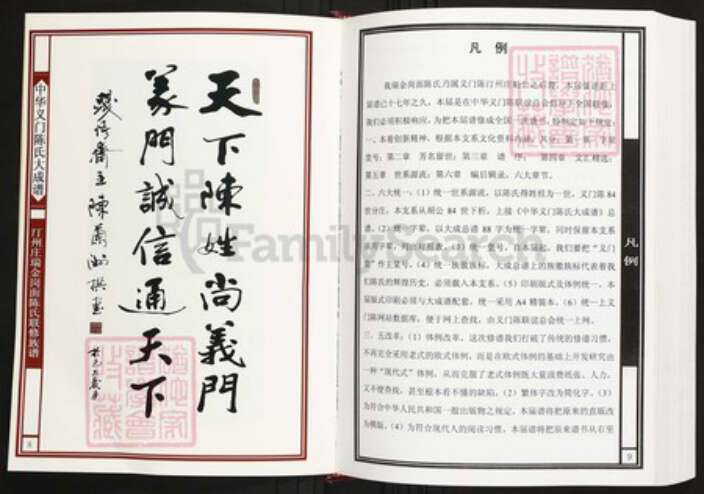 中华义门陈氏大成谱
汀州庄瑞金岗面陈氏联修族谱
天下陳姓尚義門
義門誠信通天下
8
凡 例
我瑞金岗面陈氏乃属义门陈汀州庄
届谱已十七年之久，本届是在中华义门陈联谊总会指导下全国联修，
我们必须积极响应，为把本届谱修成全国一流谱书，特制定如下规定：
一、本着创新精神，根据本支系文化资料
堂号；第二章 芳名留世；第三章 谱 序； 第四章 文汇精选；
第五章 世系源流；第六章 编后辑录，六大章节。
二、六大统一：（1）统一世系源流，以陈氏得姓祖为一世，义门陈 84
世分庄，本支系从胡公 84 世下析，上接《中华义门陈氏大成谱》总
谱。（2）统一字辈，以大成总谱 88 字为统一字辈，同时保留本支系
原用字辈，列出对照表。（3）统一堂号，自本届起，我们要把“义门
堂”作主堂号。（4）统一族徽族标，大成总谱上的族徽族标代表着我
们陈氏的辉煌历史，必须载入本支系。（5）印刷版式及体例统一，本
届版式印刷必须与大成谱配套，统一采用 A4 精装本。（6）统一上义
门陈网站数据库，便于网上查阅，由义门陈联谊总会统一上网。
三、五改革：（1）体例改革，这次修谱我们打破了传统的修谱习惯，
不再完全采用老式的欧式体例，而是在欧式体例的基础上开发研究出
一种“现代式”体例，从而克服了老式体例既大量浪费纸张、人力，
又不便查找，甚至根本看不懂的缺陷。（2）繁体字改为简化字。（3）
为符合中华人民共和国一般出版物之规定，本届谱将把原来的直版改
为横版。（4）为符合现代人的阅读习惯，本届谱将把原来谱书从右至
凡例
9
FamilySearch